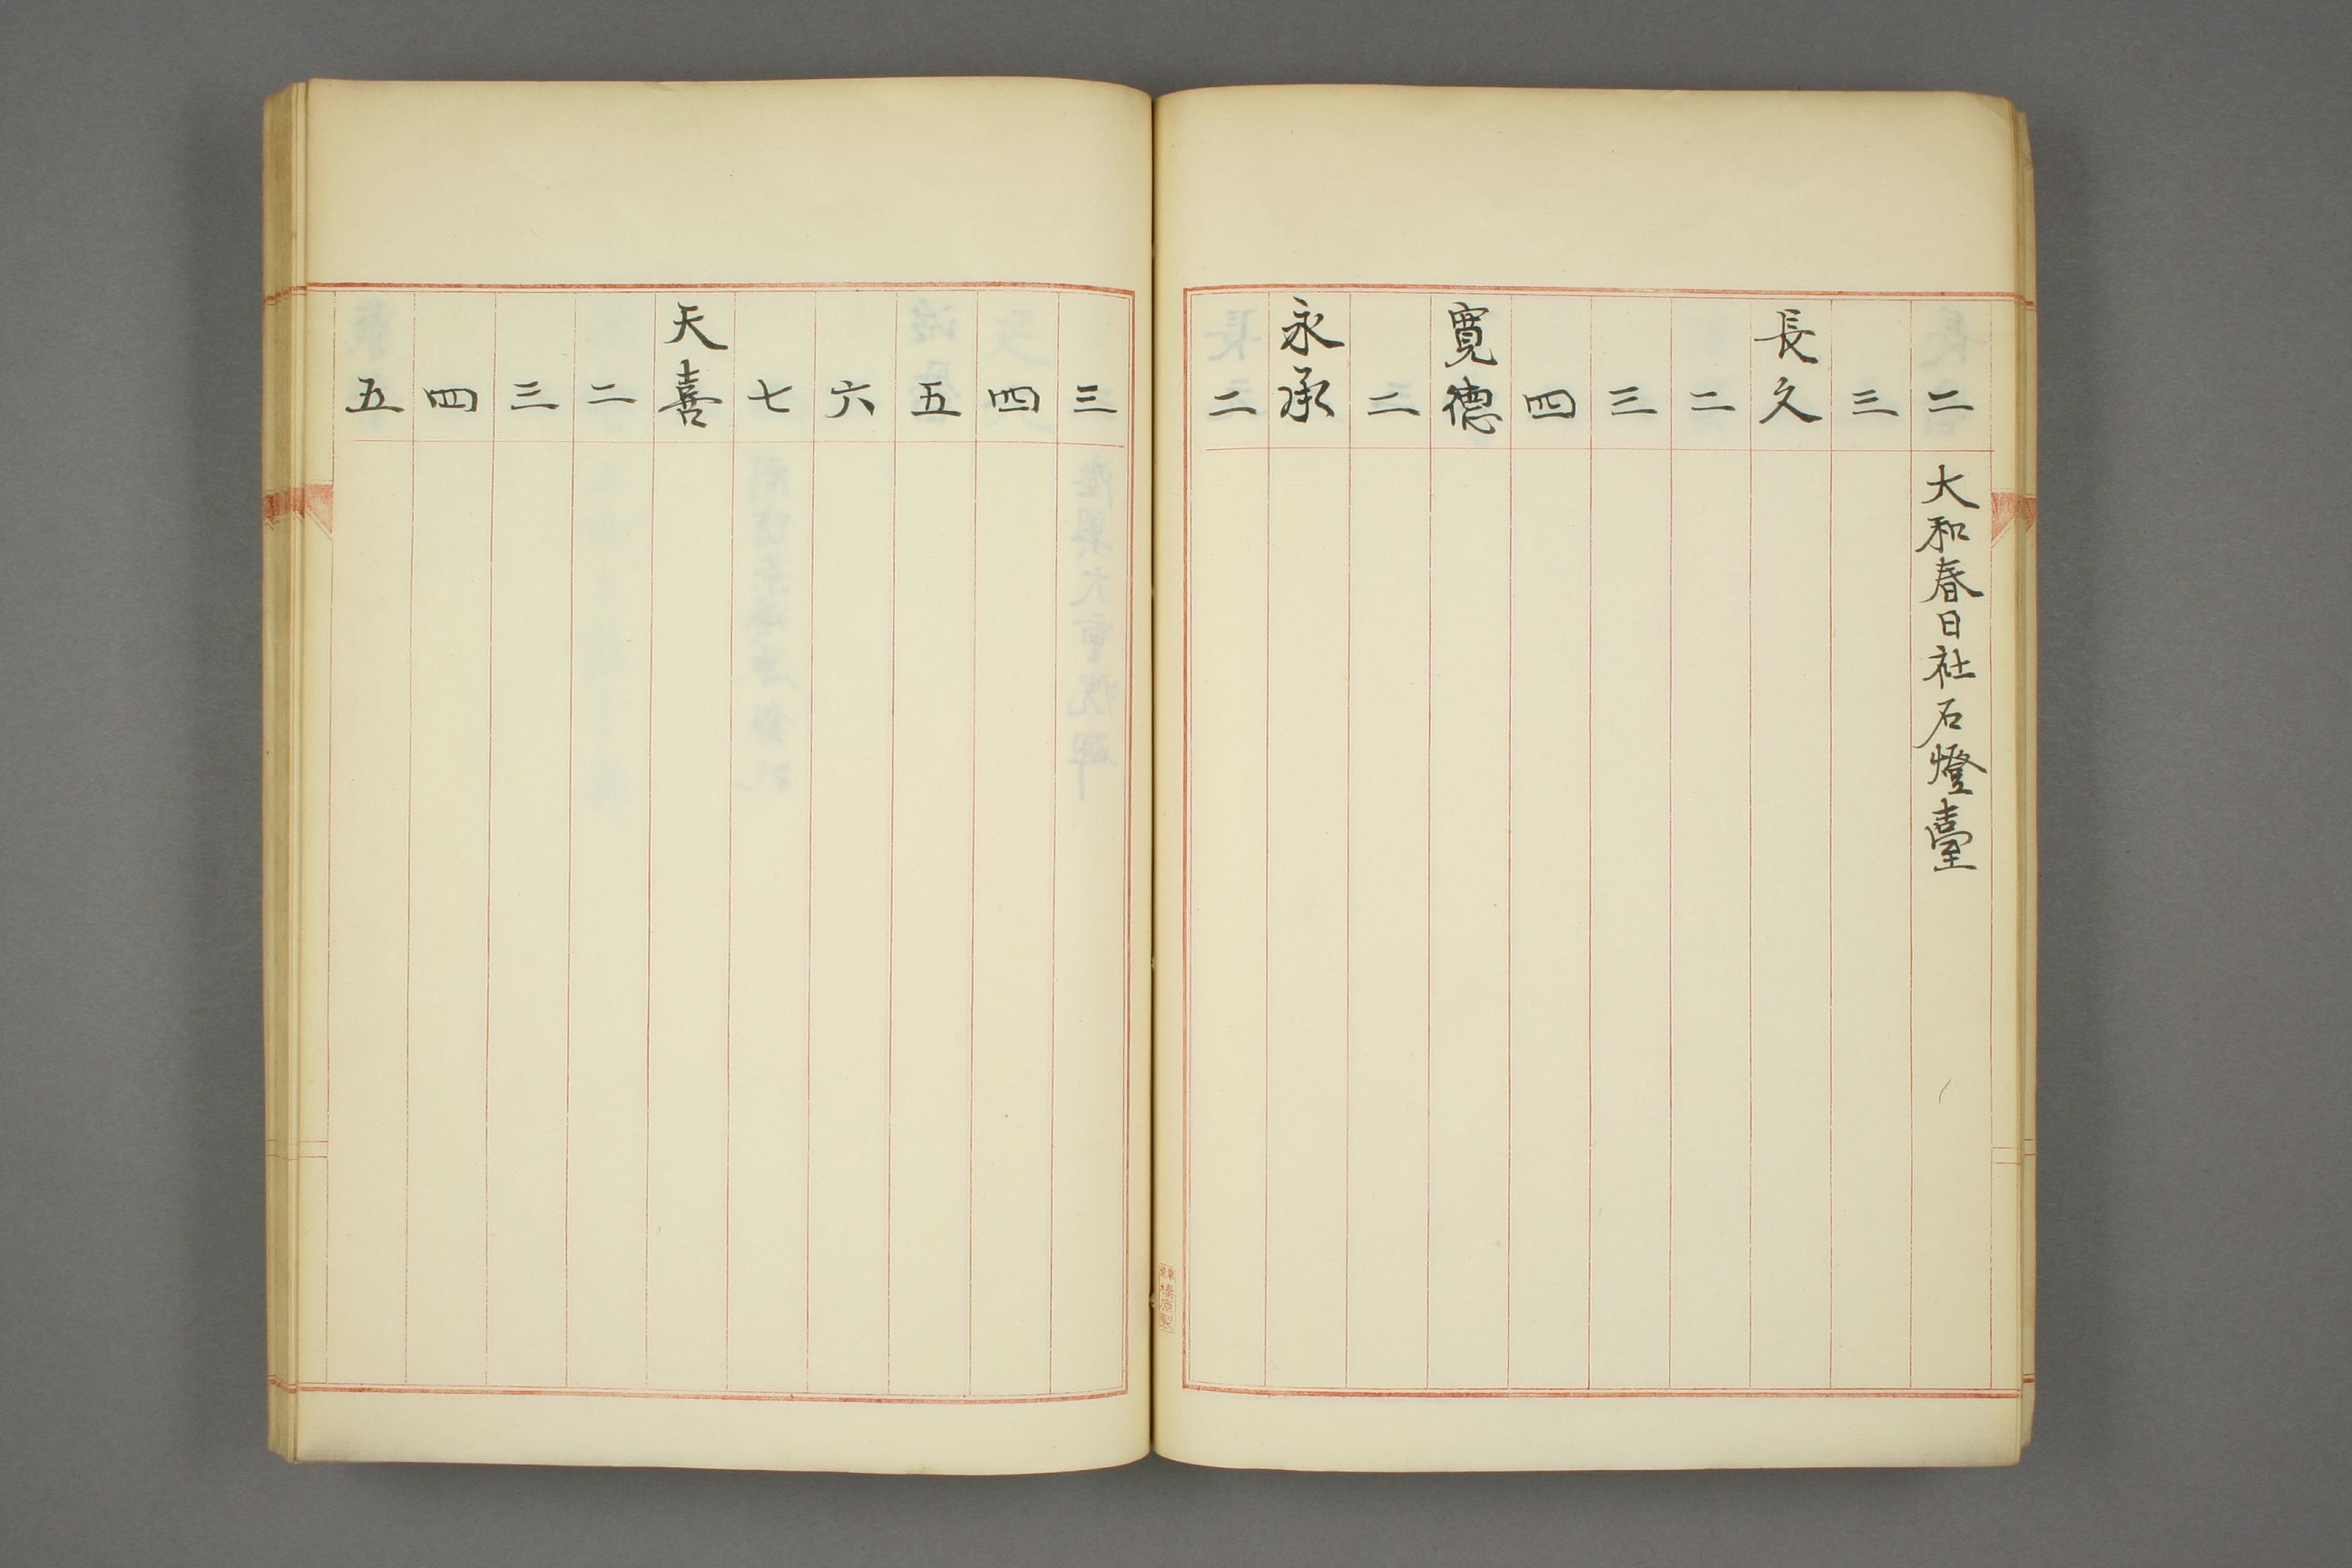 二 大和春日社石燈臺
三
長久
二
三
四
寛德
二
永承
二
三
四
五
六
七
天喜
二
三
四
五